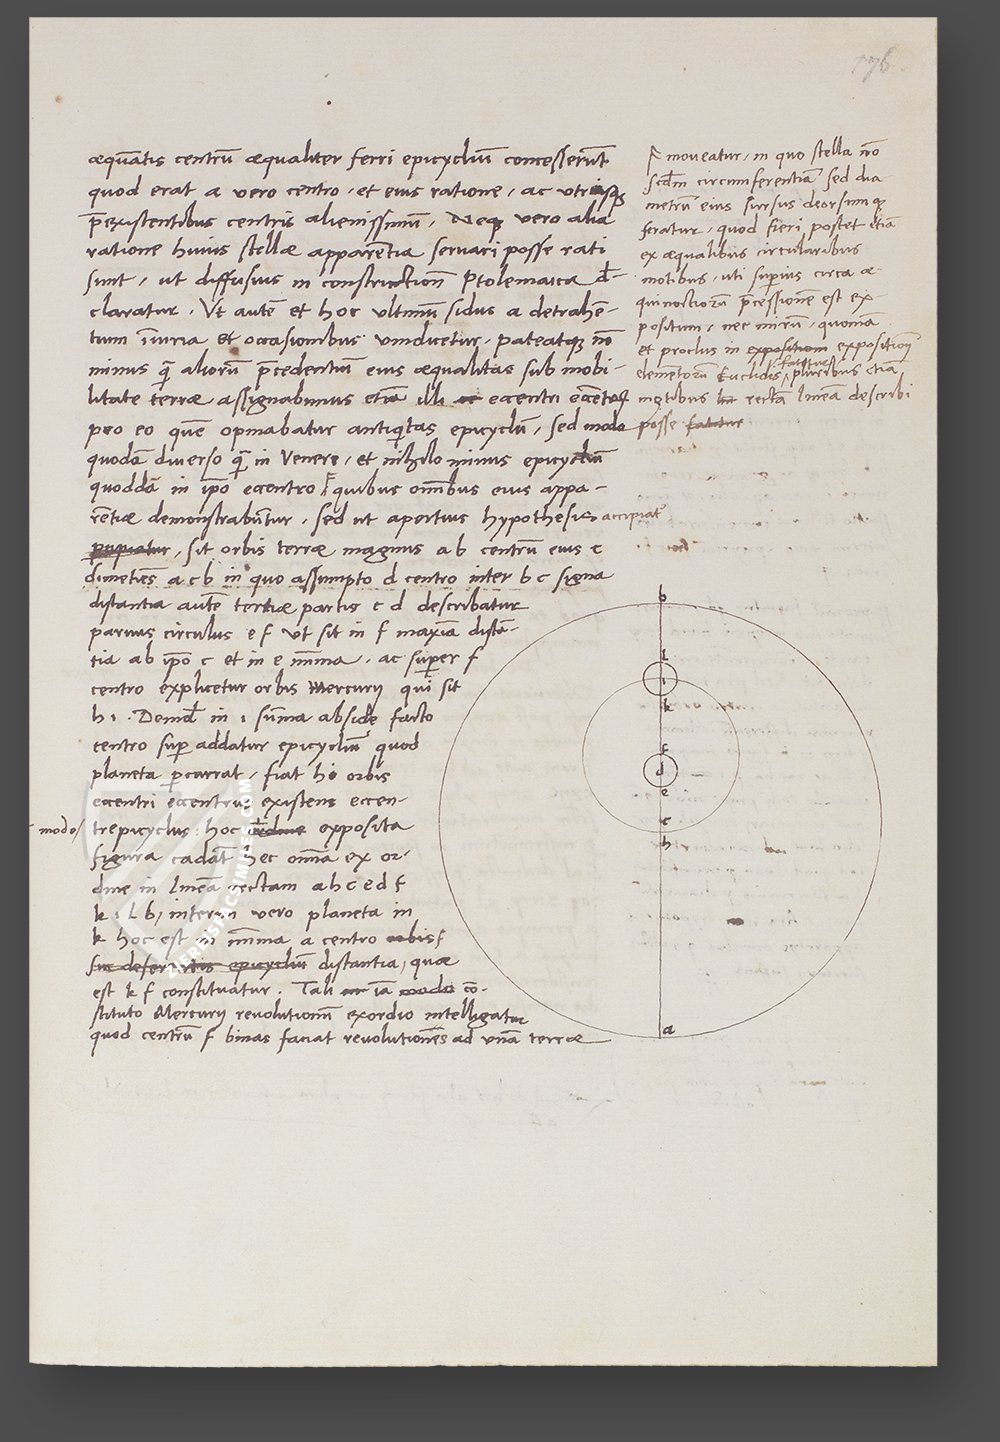 176
æquãtis centrũ æqualiter ferri epicycliũ concesserũt
quod erat a vero centro, et eius ratione, ac utriusq
p̃existentibus centris alienissimũ, Neq vero alia
ratione huius stellæ apparẽtia servari posse rati
sunt, ut diffusius in constrictionẽ Ptolemaica d̃-
claratur. Ut autẽ et hoc ultimũ sidus a detrahẽ-
tium iniuria et occasionibus vindicetur, pateatq nõ
minus q̃ aliorũ p̃cedentiũ eius æqualitas sub mobi-
litate terræ assignabimus etiã illi eccentri eccẽtrũ
pro eo quẽ opinabatur antiq̃tas epicyclũ, sed modo
quodã diverso q̃ in Venere, et nihilo minus epicycliũ
quoddã in ip̃o eccentro quibus omĩbus eius appa-
rẽtiæ demonstrabũtur, sed ut apertius hypothesis accipiat̃
percipiatur, sit orbis terræ magnus a b centrũ eius c
dimetiẽs a c b in quo assumpto d centro inter b c signa
distantia autẽ tertiæ partis c d describãtur
parvus circulus e f ut sit in f maxĩa distã-
tia ab ip̃o c et in e minĩa, ac sup̃er f
centro explicetur orbis Mercurij qui sit
h i. Deind̃ in i sũma abside facto
centro sup̃addatur epicycliũ quod
planeta p̃currat, fiat hi orbis
eccentri eccentrus existens eccen-
modo/ trepicyclus hoc ordine exposita
figura cadãt hec omĩa ex or-
dine in lineã rectam a h c e d f
k i l b, interim vero planeta in
k hoc est in minĩa a centro orbis f
sui deferentis epicycliũ distantia, quæ
est k f constituatur. Tali iã modo cõ-
stituto Mercurij revolutionũ exordio intelligatur
quod centrũ f binas faciat revolutiones ad unã terræ
moveatur, in quo stella nõ
scd̃m circumferentiã sed dia
metrũ eius sursus deorsumq
feratur, quod fieri potest etiã
ex æqualibus circularibus
motibus, uti sup̃ius circa æ-
quinoctiorũ p̃cessionẽ est ex-
positum, nec mirũ, quoniã
et proclus in expositiom expositiom
fatetur
elemẽtorũ Euclidis pluribus etiã
motibus rectã lineã describi
posse fatetur
b
l
i
k
f
d
e
c
h
a